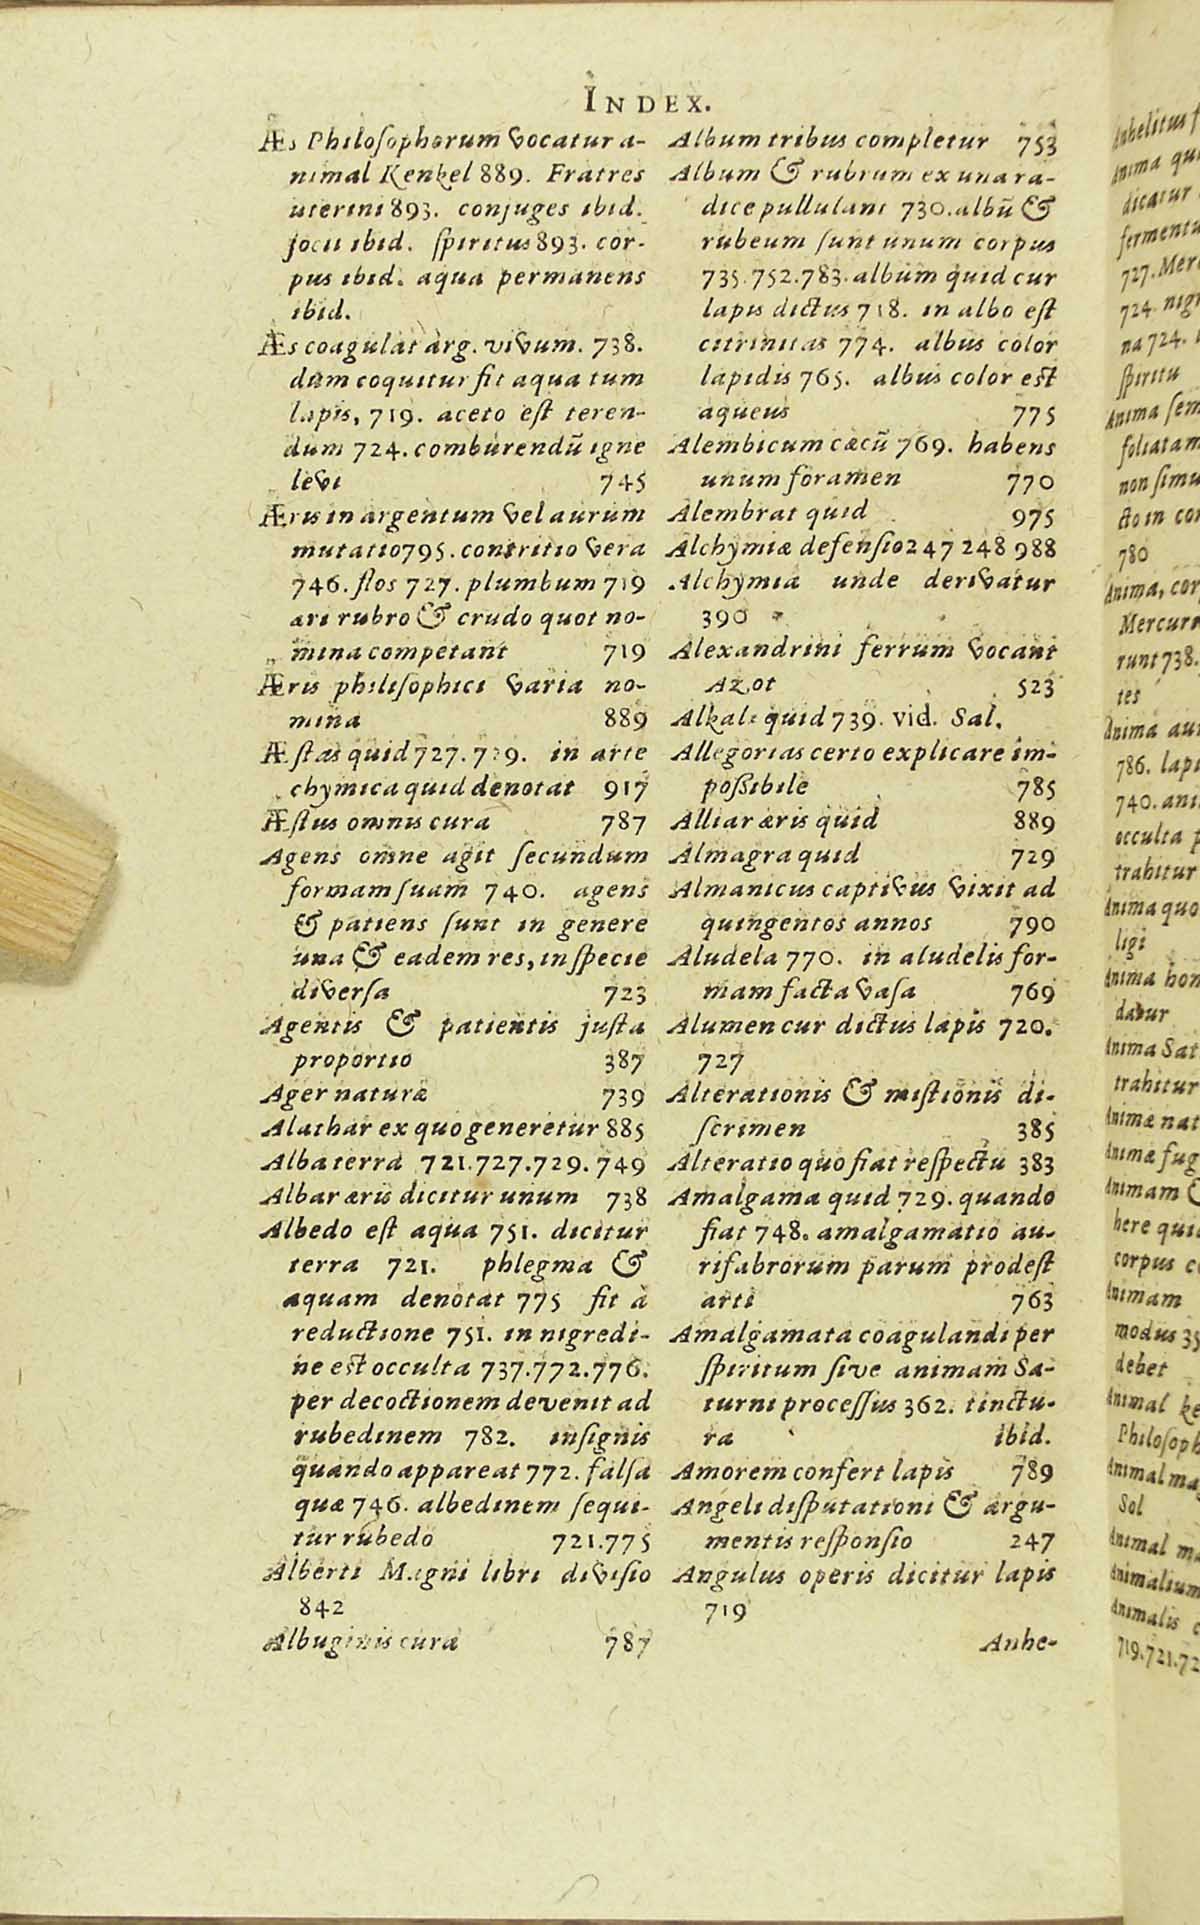 INDEX.
Æs Philoſophorum vocatur a-
nimal Kenkel 889. Fratres
uterini 893. conjuges ibid.
ſocii ibid. ſpiritus 893. cor-
pus ibid. aqua permanens
ibid.
Æs coagulat arg. vivum. 738.
dum coquitur fit aqua tum
lapis, 719. aceto eſt teren-
dum 724. comburendū igne
levi 745
Æris in argentum vel aurum
mutatio 795. contritio vera
746. flos 727. plumbum 719
æri rubro & crudo quot no-
mina competant 719
Æris philiſophici varia no-
mina 889
Æſtas quid 727. 729. in arte
chymica quid denotat 917
Æſtus omnis cura 787
Agens omne agit ſecundum
formam ſuam 740. agens
& patiens ſunt in genere
una & eadem res, in ſpecie
diverſa 723
Agentis & patientis juſta
proportio 387
Ager naturæ 739
Alathar ex quo generetur 885
Alba terra 721.727.729.749
Albar æris dicitur unum 738
Albedo eſt aqua 751. dicitur
terra 721. phlegma &
aquam denotat 775 fit à
reductione 751. in nigredi-
ne eſt occulta 737.772.776.
per decoctionem devenit ad
rubedinem 782. inſignis
quando appareat 772. falſa
quæ 746. albedinem ſequi-
tur rubedo 721.775
Alberti Magni libri diviſio
842
Albuginis cura 787
Album tribus completur 753
Album & rubrum ex una ra-
dice pullulant 730. albū &
rubeum ſunt unum corpus
735.752.783. album quid cur
lapis dictus 718. in albo eſt
citrinitas 774. albus color
lapidis 765. albus color eſt
aqueus 775
Alembicum cæcū 769. habens
unum foramen 770
Alembrat quid 975
Alchymiæ defenſio 247 248 988
Alchymia unde derivatur
390
Alexandrini ferrum vocant
Azot 523
Alkali quid 739. vid. Sal.
Allegorias certo explicare im-
poſſibile 785
Alliar æris quid 889
Almagra quid 729
Almanicus captivus vixit ad
quingentos annos 790
Aludela 770. in aludelis for-
mam facta vaſa 769
Alumen cur dictus lapis 720.
727
Alterationis & miſtionis di-
ſcrimen 385
Alteratio quo fiat reſpectu 383
Amalgama quid 729. quando
fiat 748. amalgamatio au-
rifabrorum parum prodeſt
arti 763
Amalgamata coagulandi per
ſpiritum ſive animam Sa-
turni proceſſus 362. tinctu-
ra ibid.
Amorem confert lapis 789
Angeli diſputationi & argu-
mentis reſponſio 247
Angulus operis dicitur lapis
719
Anhe-
Anima
dicatur
727.
724.
na 724.
ſpiritu
Anima
foliatam
780
Anima, cor
runt 738.
tes
786. lapi
740. ani
occulta
trahitur
Anima quo
ligi
Anima
datur
Anima Sat
trahitur
Animæ nat
Animæ fug
Animam &
corpus
Animam
modus 35
debet
Animal
Philoſoph
Animal
Sol
Animal
Animalium
Animalis
719.721.72